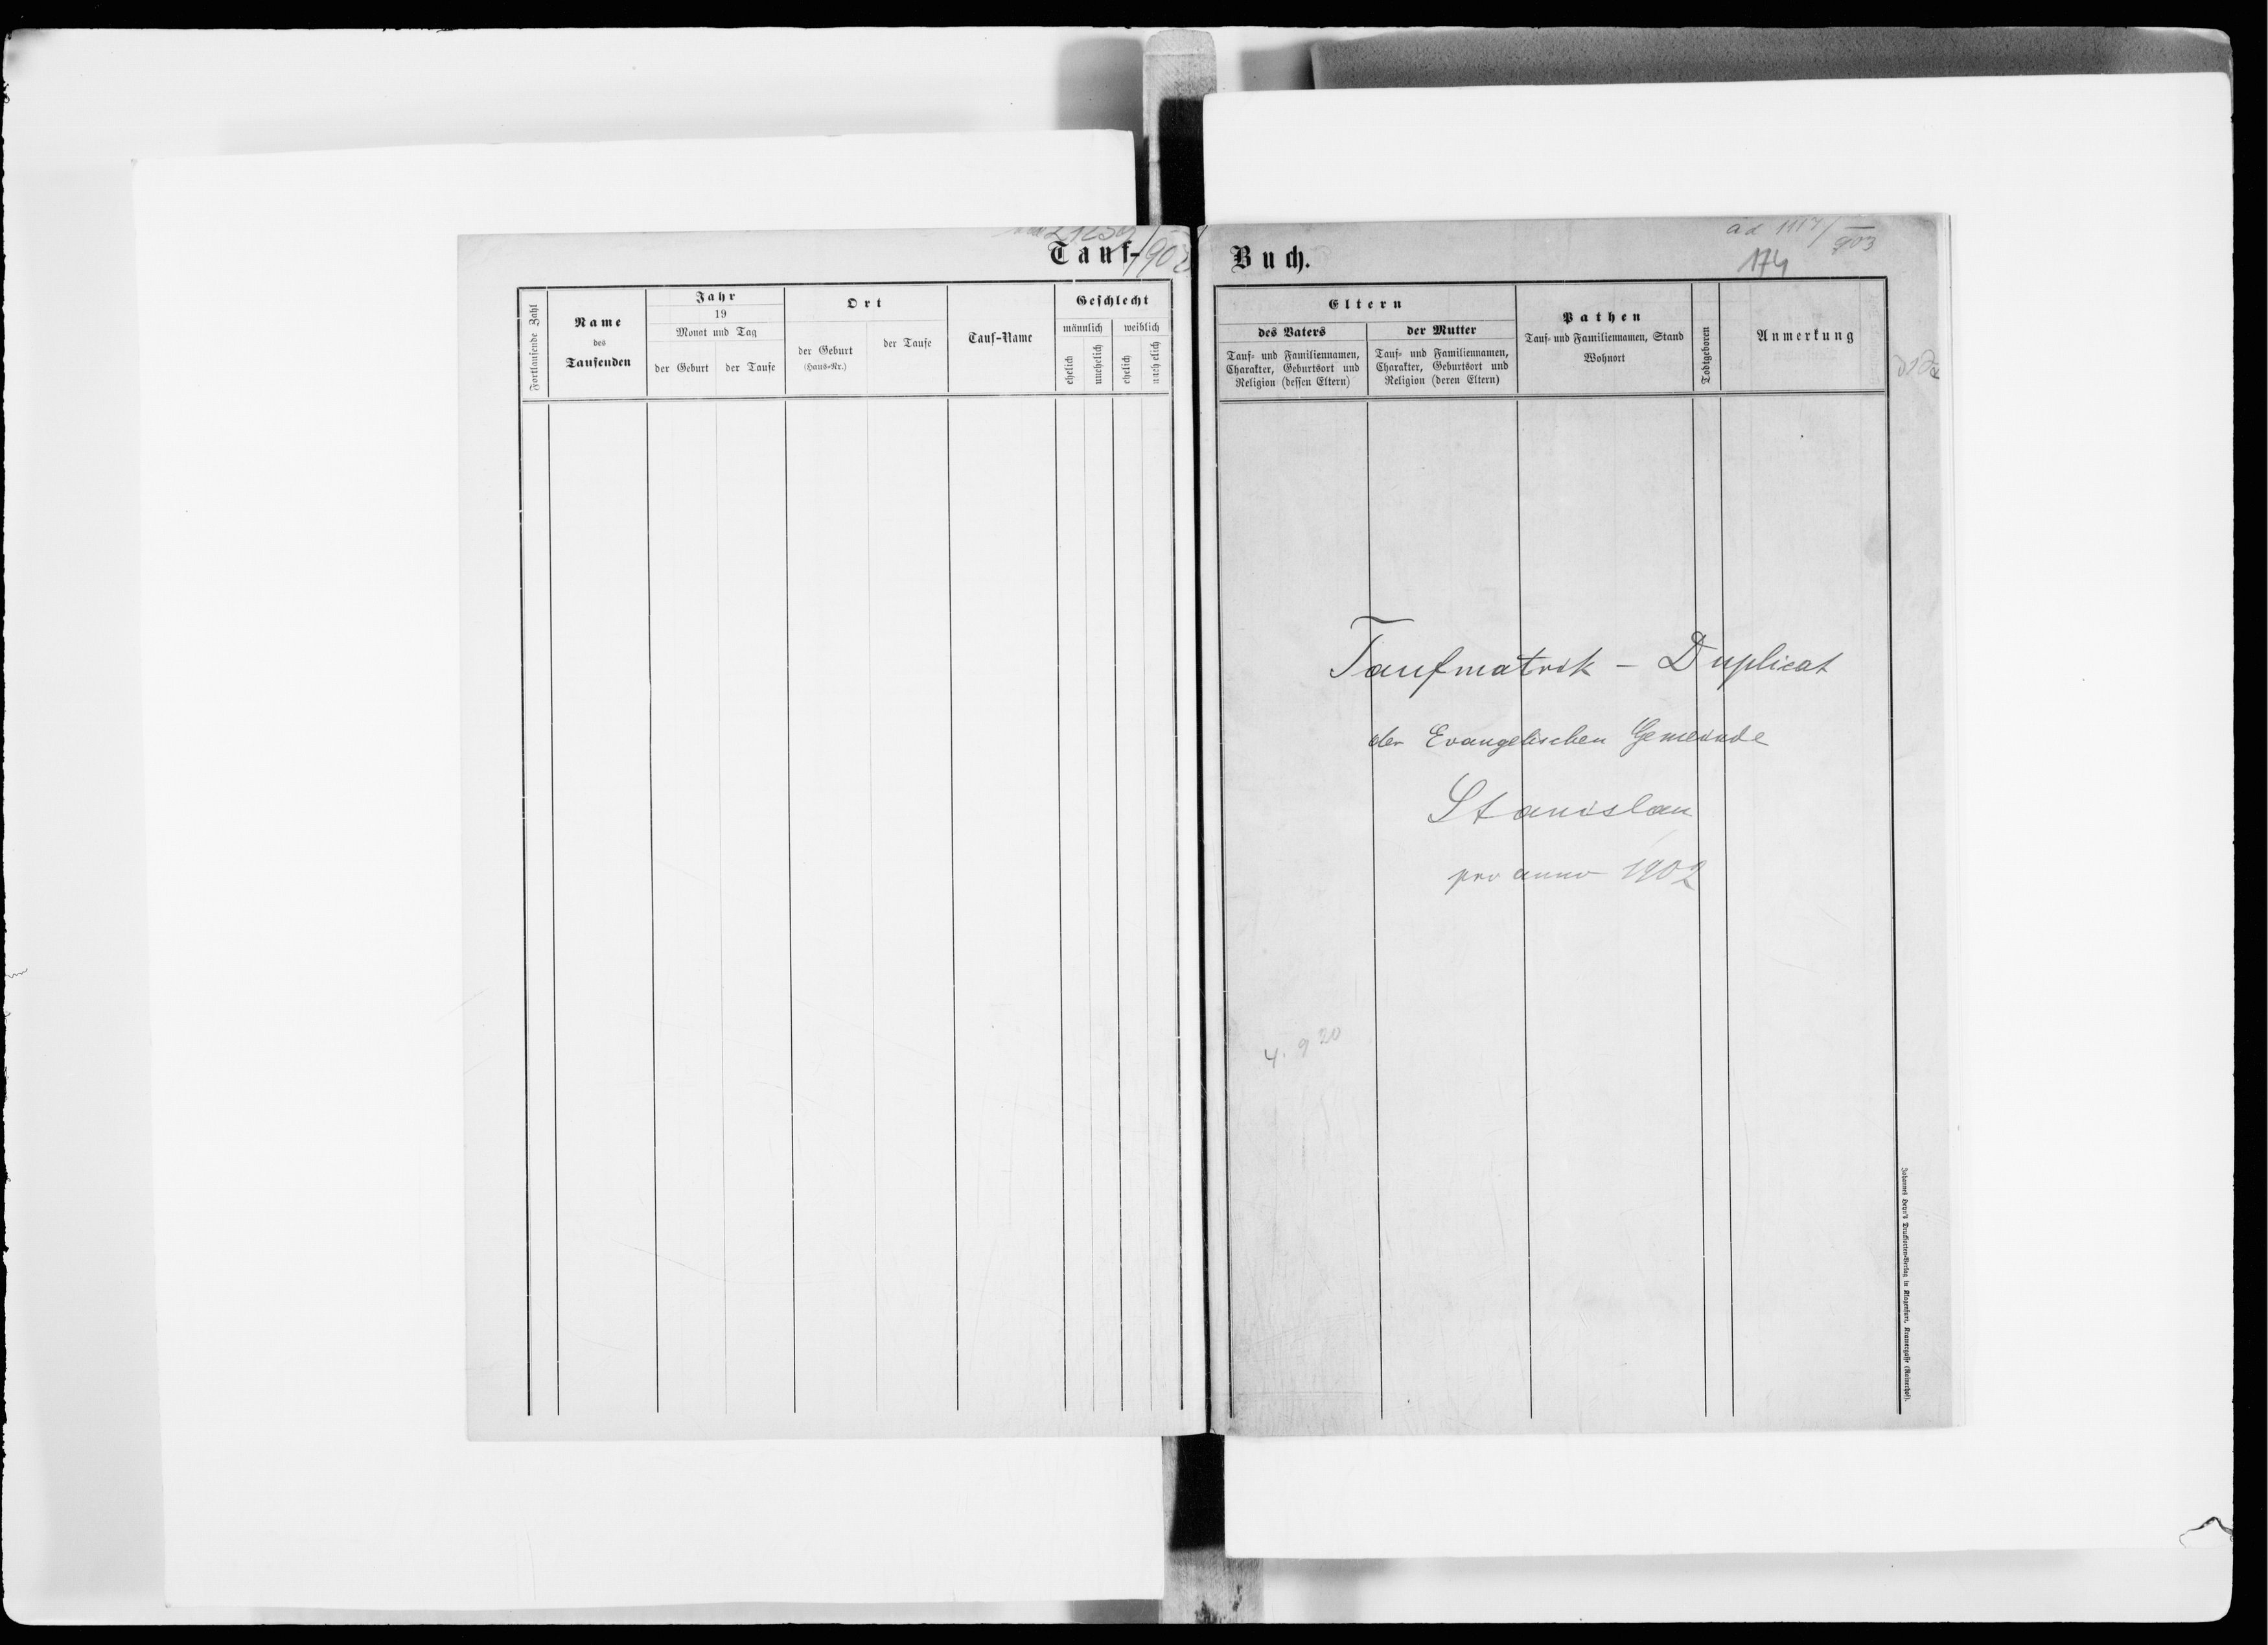 Tauf-
21259/902
Fortlaufende Zahl
Name
des
Taufenden
Jahr
19
Monat und Tag
der Geburt
der Taufe
Ort
der Geburt
(Haus-Nr.)
der Taufe
Tauf-Name
Geschlecht
männlich
weiblich
ehelich
unehelich
ehelich
unehelich
Buch.
ad 1117/903
174
Eltern
des Vaters
Tauf- und Familiennamen,
Charakter, Geburtsort und
Religion (dessen Eltern)
der Mutter
Tauf- und Familiennamen,
Charakter, Geburtsort und
Religion (deren Eltern)
Pathen
Tauf- und Familiennamen, Stand
Wohnort
Todtgeboren
Anmerkung
Taufmatrik - Duplicat
der Evangelischen Gemeinde
Stanislau
pro anno 1902
4. 9 20
Johannes Heyn's Drucksorten-Verlag in Klagenfurt, Kramergasse (Rainerhof).